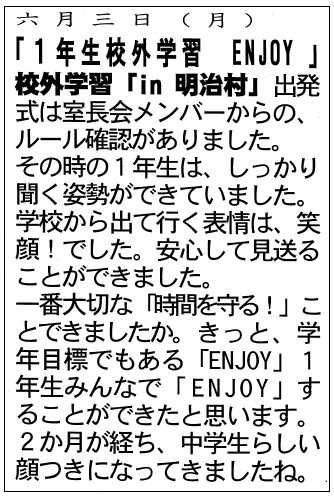 六月三日（月）
「１年生校外学習　ENJOY」
校外学習「in 明治村」出発
式は室長会メンバーからの、
ルール確認がありました。
その時の１年生は、しっかり
聞く姿勢ができていました。
学校から出て行く表情は、笑
顔！でした。安心して見送る
ことができました。
一番大切な「時間を守る！」こ
とできましたか。きっと、学
年目標でもある「ENJOY」１
年生みんなで「ENJOY」す
ることができたと思います。
２か月が経ち、中学生らしい
顔つきになってきましたね。